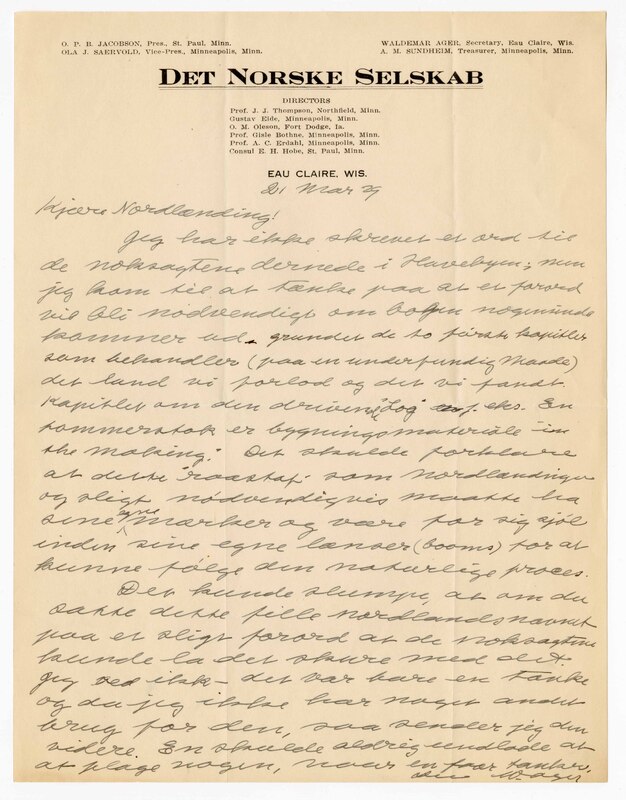 O. P. B. JACOBSON, Pres., St. Paul, Minn.
OLA J. SAERVOLD, Vice-Pres., Minneapolis, Minn.
WALDEMAR AGER, Secretary, Eau Claire, Wis.
A. M. SUNDHEIM, Treasurer, Minneapolis, Minn.
DET NORSKE SELSKAB
DIRECTORS
Prof. J. J. Thompson, Northfield, Minn.
Gustav Eide, Minneapolis, Minn.
O. M. Oleson, Fort Dodge, Ia.
Prof. Gisle Bothne, Minneapolis, Minn.
Prof. A. C. Erdahl, Minneapolis, Minn.
Consul E. H. Hobe, St. Paul, Minn.
EAU CLAIRE, WIS.
21 Mar 29
Kjære Nordlænding!
Jeg har ikke skrevet et ord til
de noksagtene dernede i Havebyen; men
jeg kom til at tænke paa at et forord
vil bli nødvendigt om boken nogensinde
kommer ud. grundet de to første kapitler
som behandler (paa en underfundig Maade)
det land vi forlod og det vi fandt
Kapitlet om den drivende "Log" f. eks. En
tømmerstok er bygningsmateriale "in
the making." Det skulde forklare
at dette "raastof" som Nordlændinger
og sligt nødvendigvis maatte ha
sine egne Mærker og være for sig sjøl
inden sine egne lænser (booms) for at
kunne følge den naturlige proces.
Det kunde slumpe, at om du
satte dette fille Nordlandsnavnet
paa et sligt forord at de noksagtene
kunde la det skure med det
jeg ved ikke – det var bare en tanke
og da jeg ikke har noget andet
brug for den, saa sender jeg den
videre. En skulde aldrig undlade at
at plage nogen, naar en faar tanker.
din W. Ager